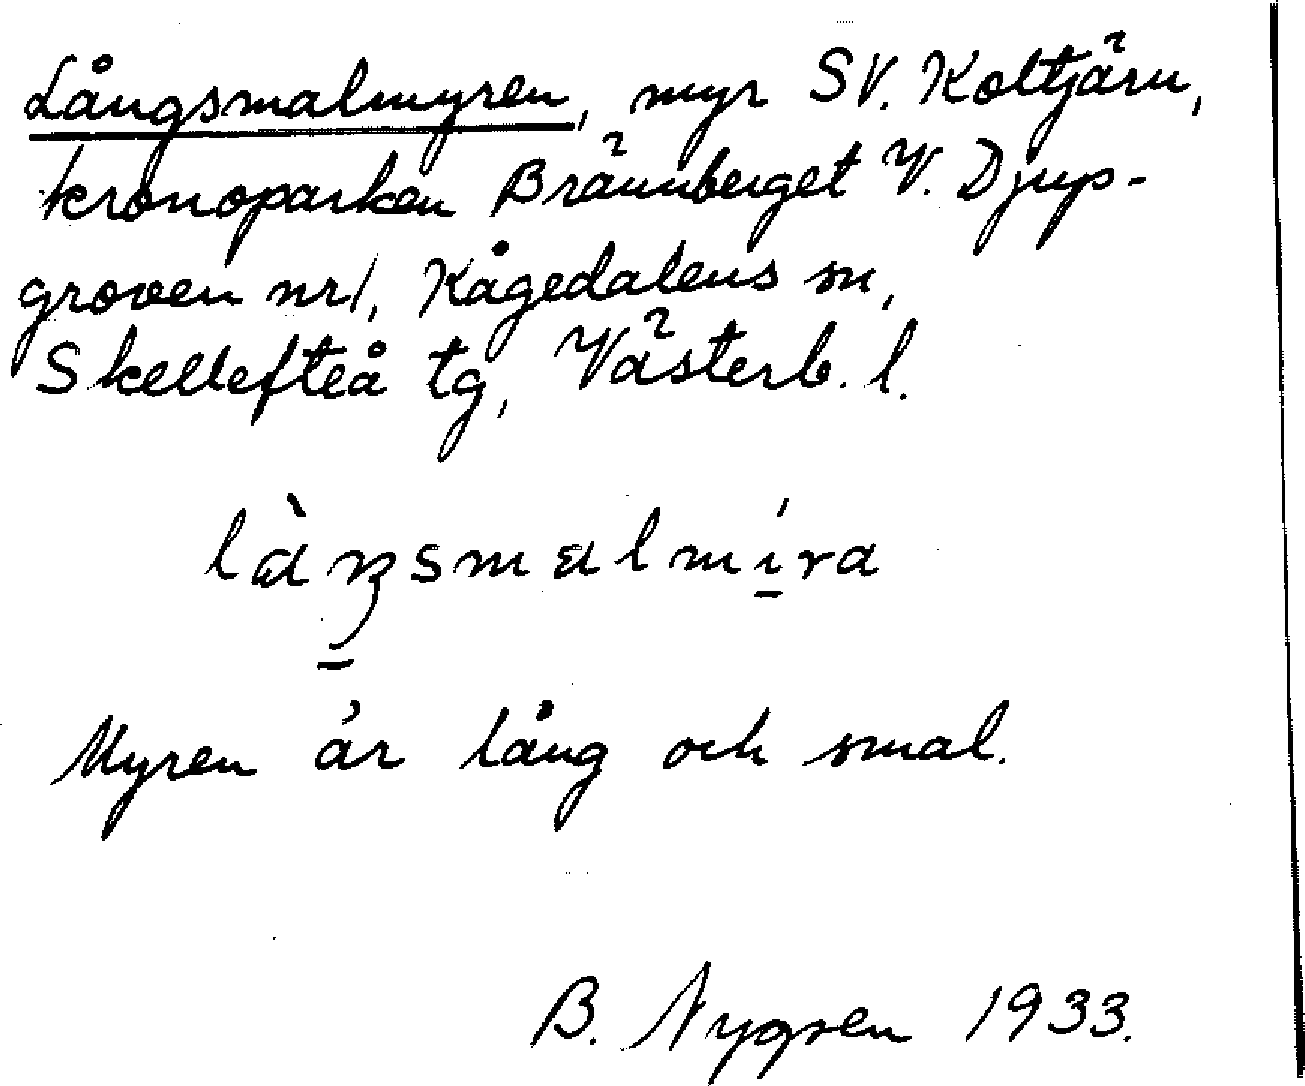 Långsmalmyren, myr SV. Koltjärn,
kronoparken Brännberget V. Djup-
groven nr 1, Kågedalens sn,
Skellefteå tg, Västerb. l.
Myren är lång och smal.
B. Nygren 1933.